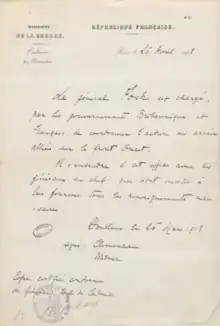 MINISTÈRE
DE LA GUERRE
RÉPUBLIQUE FRANÇAISE
Cabinet
du Ministre
Paris, le 26 Avril 1918
Le général Foch est chargé
par les gouvernements Britannique et
Français de coordonner l'action des armées
alliées sur le front Ouest.
Il s'entendra à cet effet avec les
généraux en chef qui sont invités à
lui fournir tous les renseignements néces-
saires.
Doullens le 26 Mars 1918
signé: Clemenceau
Milner
Copie certifiée conforme
Le général Chef de Cabinet